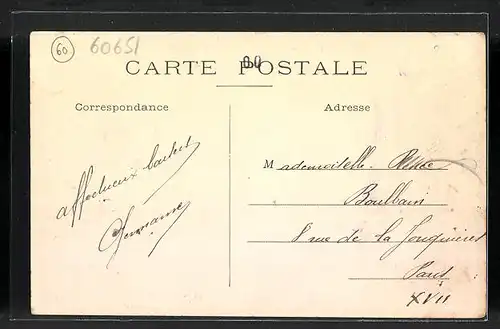 60
60651
60
CARTE POSTALE
Correspondance
Adresse
affectueux baisers
Germaine
Mademoiselle Renée
Boulbain
8 rue de la Jonquière
Paris
XVII